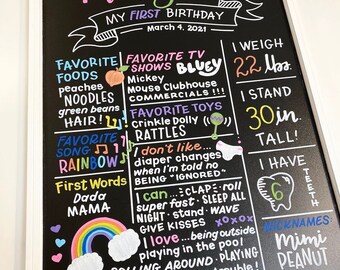 MY FIRST BIRTHDAY
March 4, 2021
FAVORITE
FOODS
peaches
NOODLES
green beans
HAIR!
FAVORITE
SONG
RAINBOW
First Words
Dada
MAMA
FAVORITE TV
SHOWS
BLUEY
Mickey
Mouse Clubhouse
COMMERCIALS!!!
FAVORITE TOYS
Crinkle Dolly
RATTLES
I don't like...
diaper changes
when I'm told no
BEING "IGNORED"
I can... CLAP • roll
super fast • SLEEP ALL
NIGHT • stand • WAVE
GIVE KISSES xoxox
I love... being outside
playing in the pool
ROLLING AROUND • PLAYING
trouble!
I WEIGH
22 lbs.
I STAND
30 in
TALL!
I HAVE
6
TEETH
NICKNAMES
Mimi
PEANUT